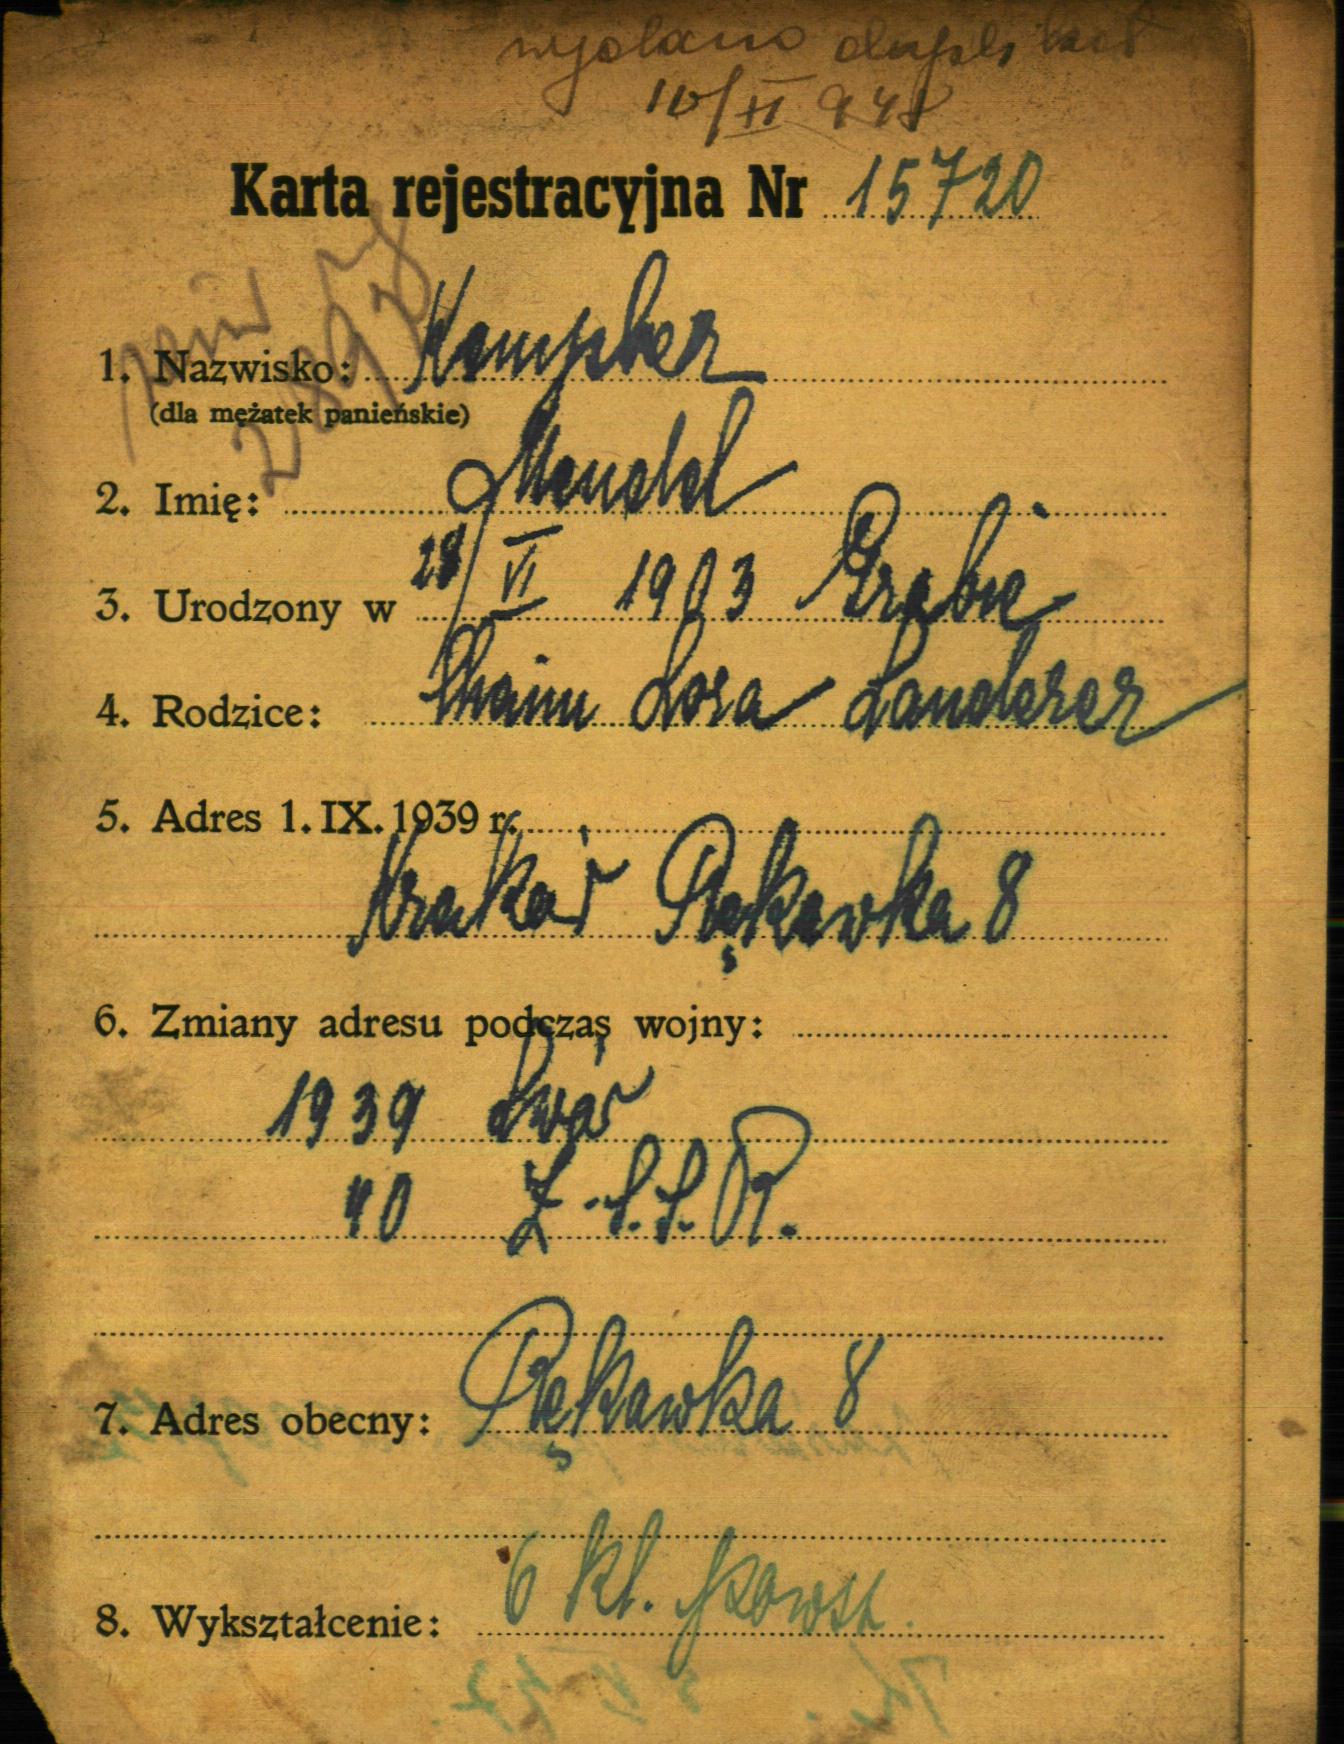 wydano duplikat
10/XI 948
Karta rejestracyjna Nr 15720
1. Nazwisko: Kempler
(dla mężatek panieńskie)
2. Imię: Mendel
3. Urodzony w 28/VI 1903 Grabie
4. Rodzice: Chaim Lora Landerer
5. Adres 1. IX. 1939 r.
Kraków Rękawka 8
6. Zmiany adresu podczas wojny:
1939 Lwów
40 Z.S.S.R.
7. Adres obecny: Rękawka 8
6 kl. powsz.
8. Wykształcenie: